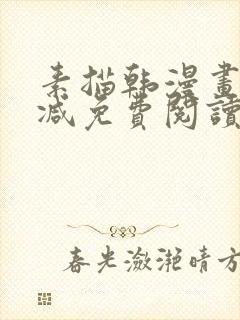 素描韩漫畫
减免費閱讀
春光潋滟晴方